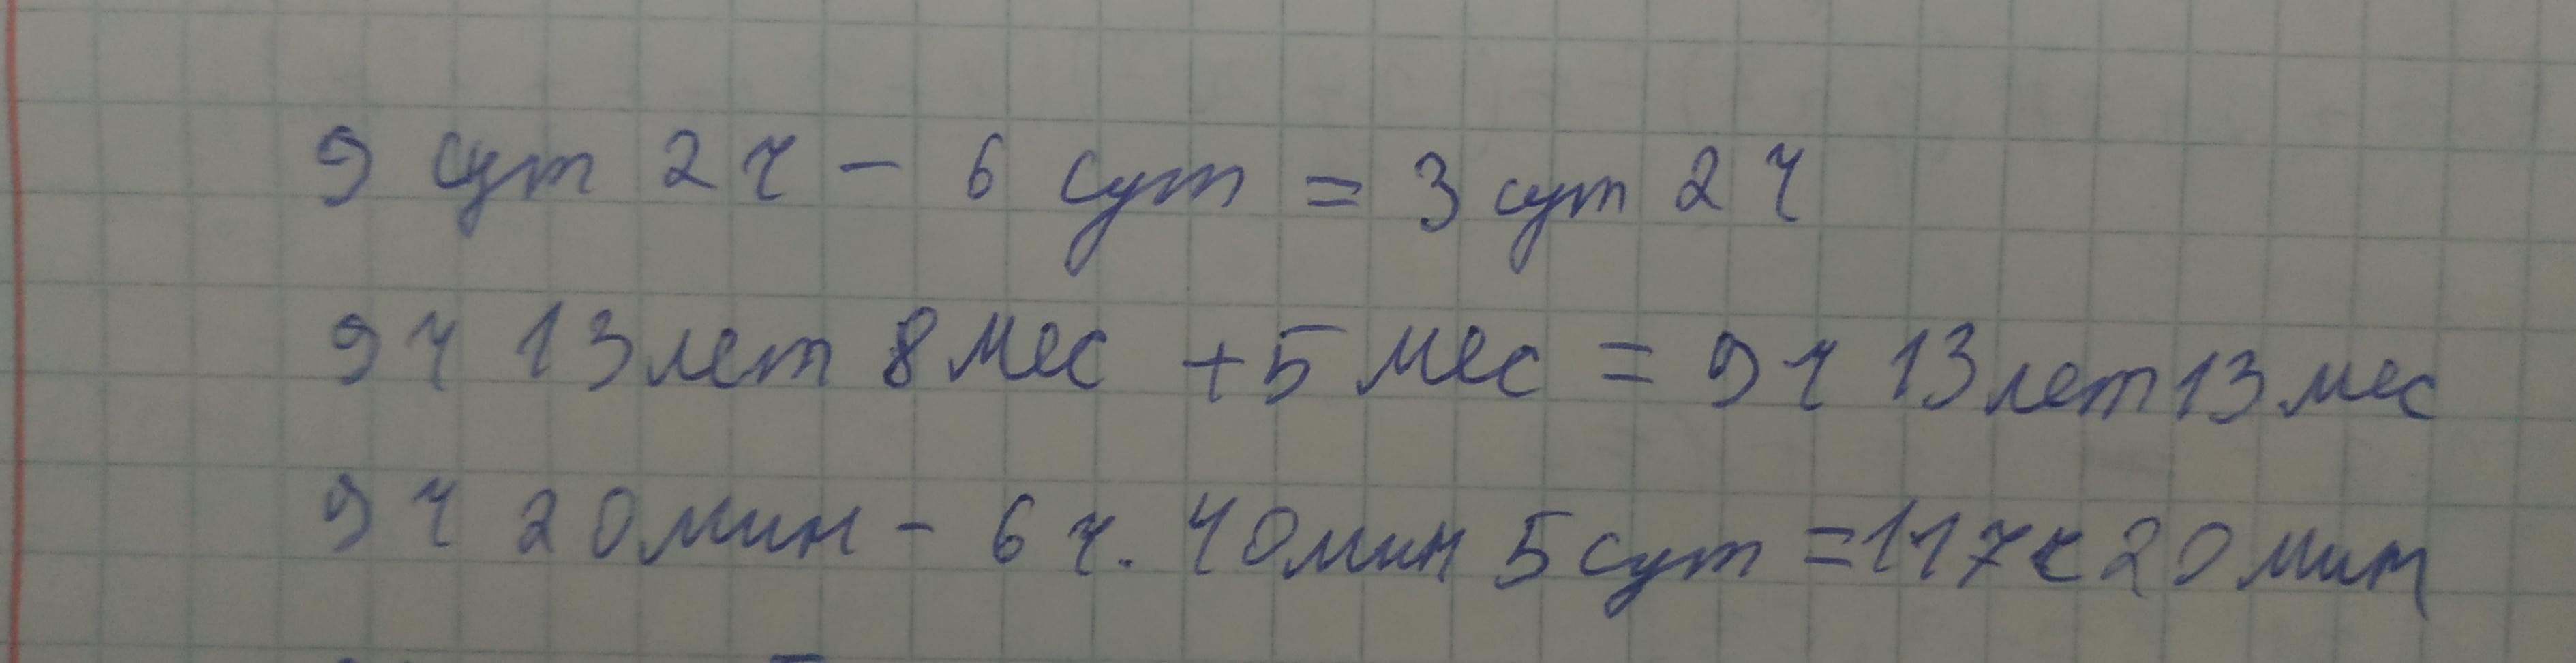 9 сут 2 ч - 6 сут = 3 сут 2 ч
9 ч 13 лет 8 мес + 5 мес = 9 ч 13 лет 13 мес
9 ч 20 мин - 6 ч. 40 мин 5 сут = 117 ч 20 мин